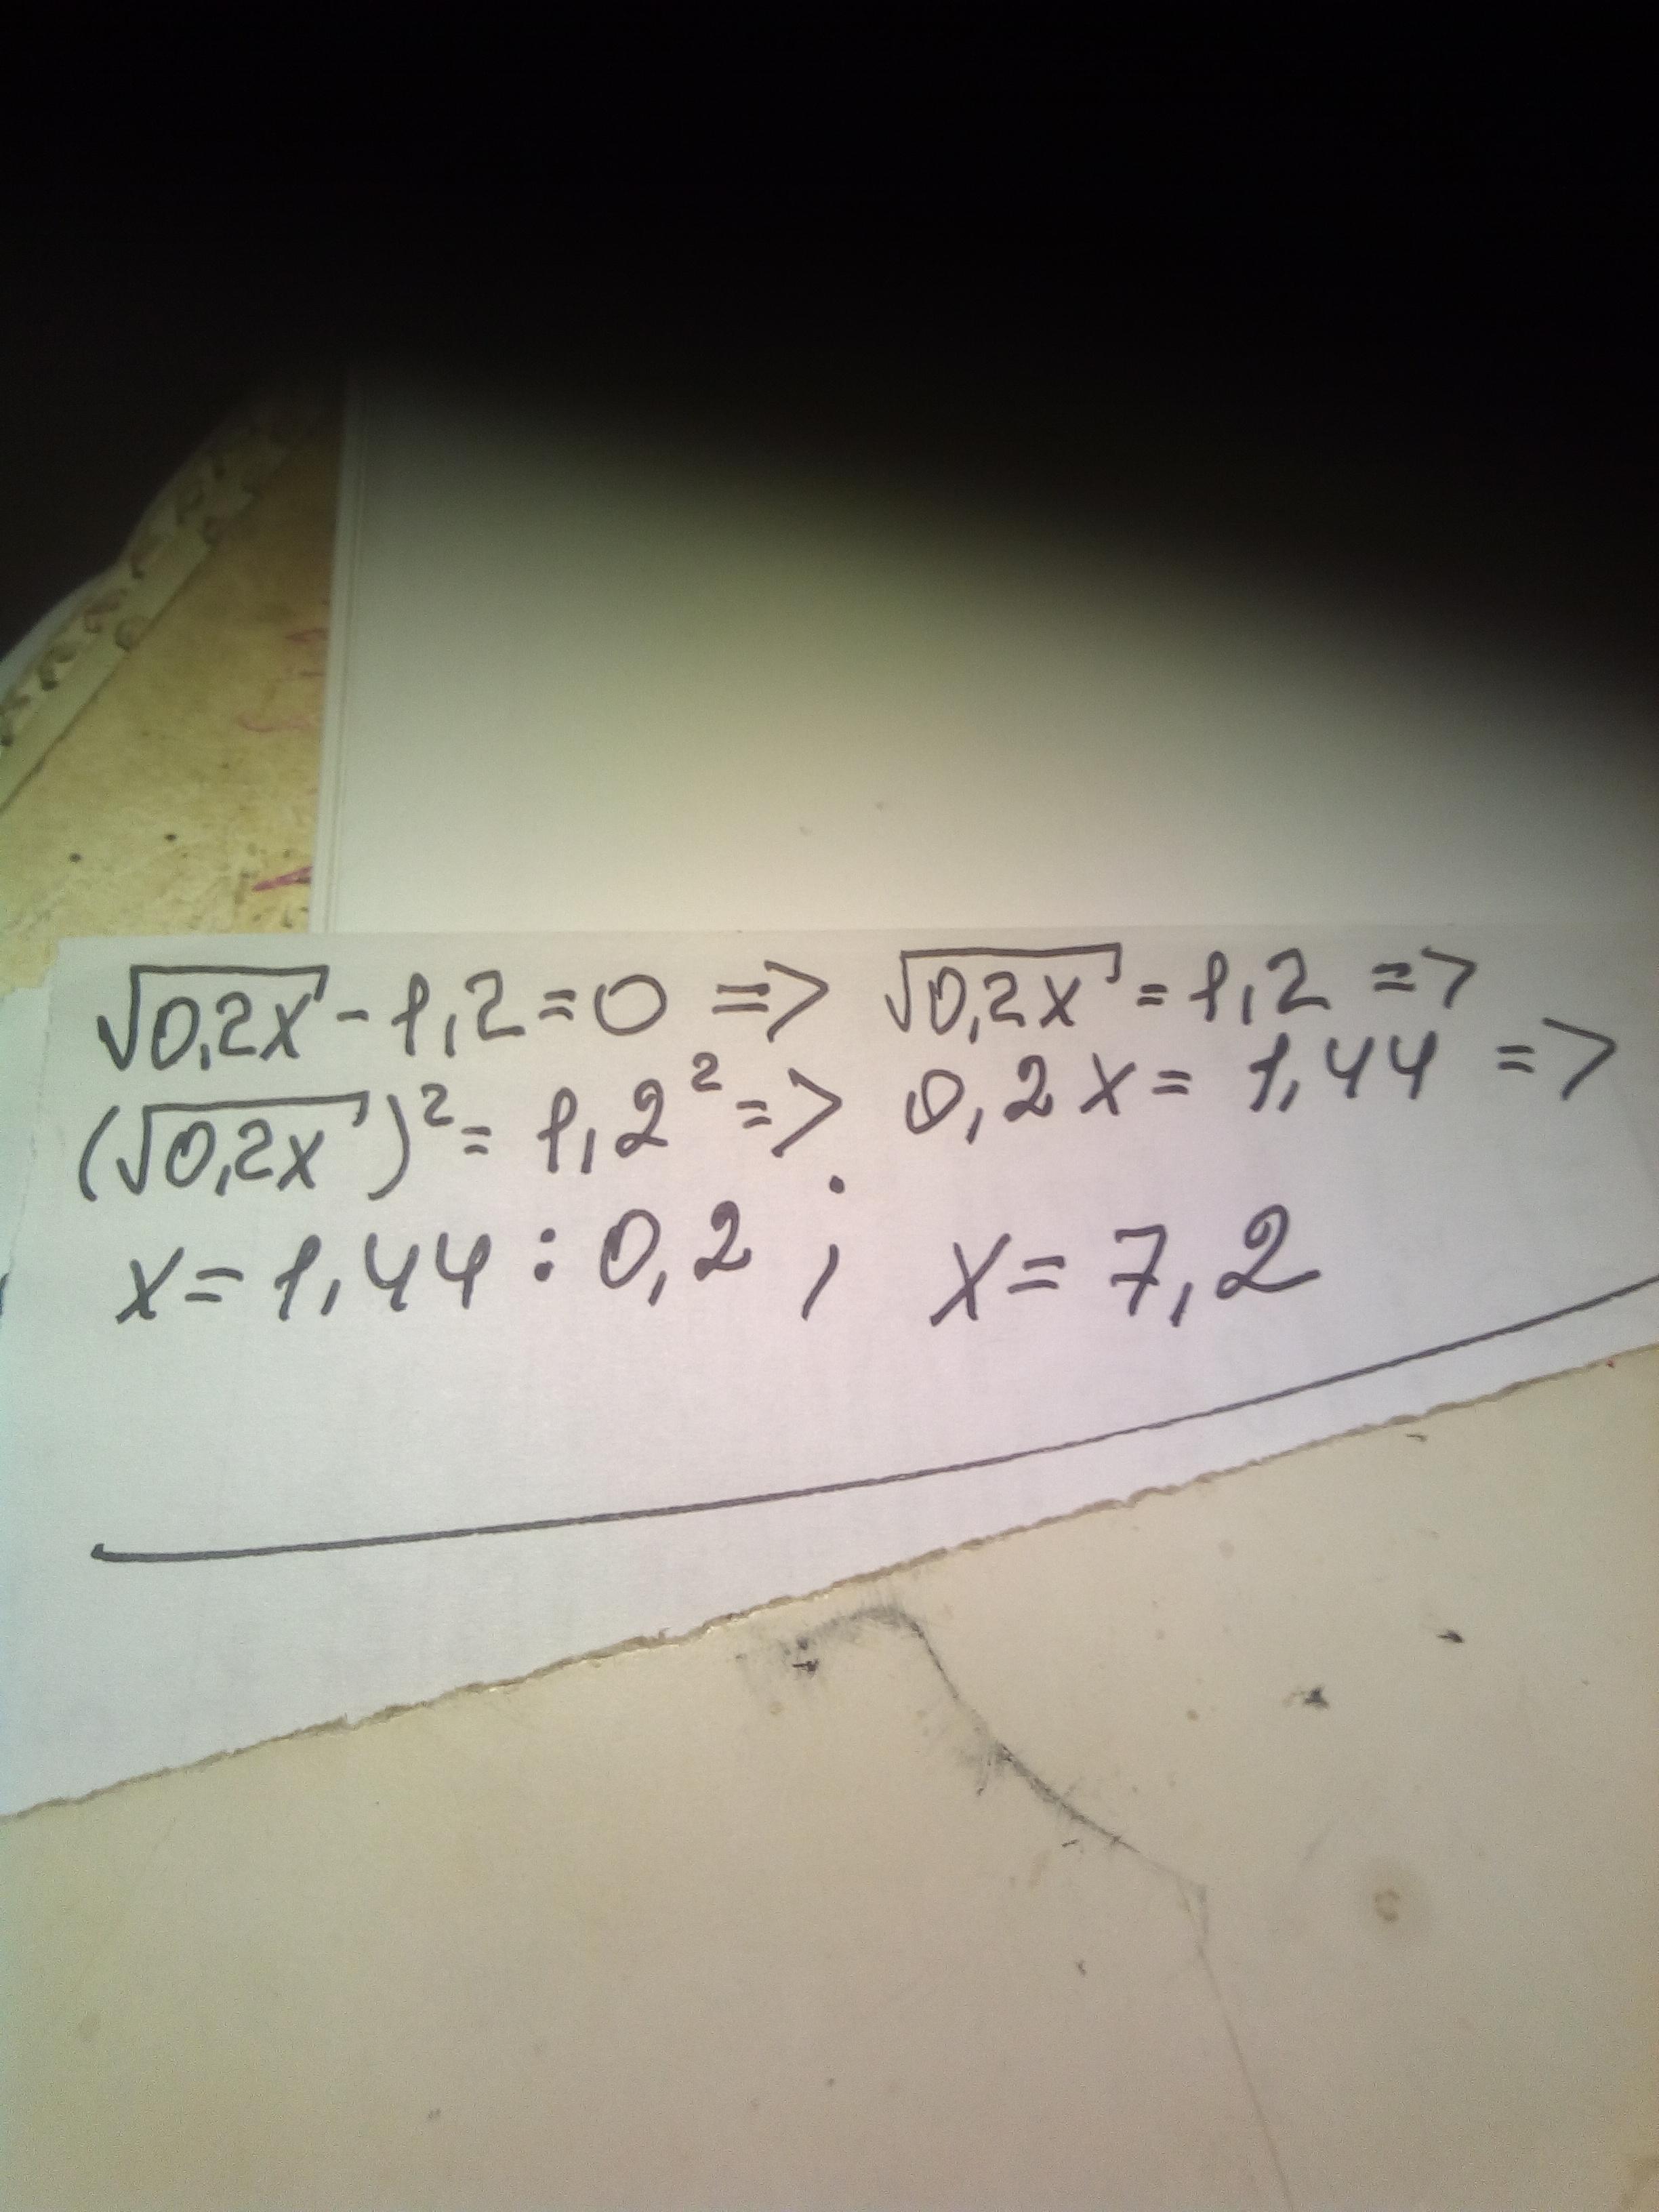 √0,2x - 1,2 = 0 => √0,2x = 1,2 =>
(√0,2x)² = 1,2² => 0,2x = 1,44 =>
x = 1,44 : 0,2 ; x = 7,2